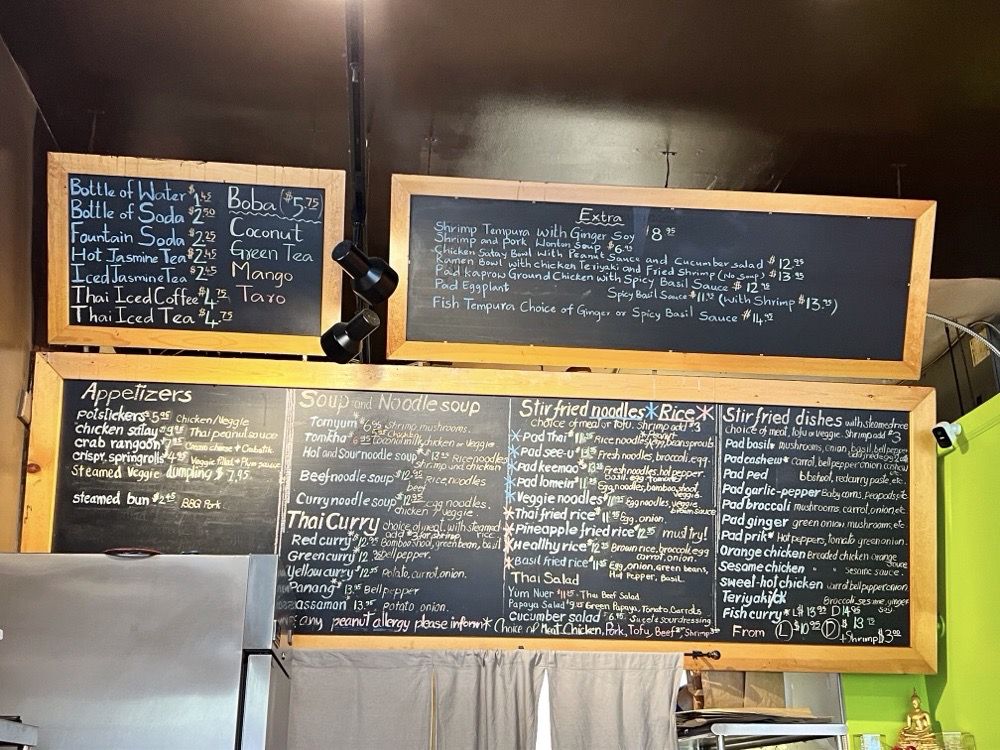 Bottle of Water $1.45
Bottle of Soda $2.50
Fountain Soda $2.25
Hot Jasmine Tea $2.45
Iced Jasmine Tea $2.45
Thai Iced Coffee $4.75
Thai Iced Tea $4.75
Boba ($5.75)
Coconut
Green Tea
Mango
Taro
Extra
Shrimp Tempura with Ginger Soy $8.95
Shrimp and Pork Wonton Soup $6.95
Chicken Satay Bowl With Peanut Sauce and Cucumber salad $12.95
Ramen Bowl with chicken Teriyaki and Fried Shrimp (No Soup) $13.95
Pad Kaprow Ground Chicken with Spicy Basil Sauce $12.95
Pad Eggplant Spicy Basil Sauce $11.95 (with Shrimp $13.95)
Fish Tempura Choice of Ginger or Spicy Basil Sauce $14.95
Appetizers
potstickers $5.95 Chicken/Veggie
chicken satay Thai peanut sauce
crab rangoon Cream cheese +
crispr. springrolls $4.95 Veggie filled + Plum sauce
Steamed Veggie dumpling $7.95
steamed bun $2.45 BBQ Pork
Soup and Noodle soup
Tomyum $6.95 Shrimp, mushrooms.
Tomkha 6.95 Coconut milk, chicken or Veggie
Hot and Sour noodle soup Rice noodles
shrimp and chicken
Beef noodle soup $12.95 Rice noodles
beef
Curry noodle soup egg noodles.
chicken / veggie
Thai Curry choice of meat, with steamed rice.
add $3 for shrimp
Red curry $12.95 Bamboo shoot, green bean, basil
Green curry 12.95 Bell pepper.
Yellow curry 12.95 Potato, carrot, onion.
Panang 13.95 Bell pepper
assaman 13.95 potato onion.
any peanut allergy please inform
Stir fried noodles * Rice *
choice of meat or Tofu. Shrimp add $3
* Pad Thai Rice noodles, egg, bean sprouts
* Pad see-u Fresh noodles, broccoli, egg.
* Pad keemao Fresh noodles, hot pepper.
Basil. egg Tomato
* Pad lomein Egg noodles, bamboo shoot,
veggie
* Veggie noodles Egg noodles, veggie
brown sauce
* Thai fried rice Egg, onion.
* Pineapple fried rice must try!
* Healthy rice Brown rice, broccoli, egg
carrot, onion.
* Basil fried rice Egg, onion, green beans,
Hot Pepper, Basil
Thai Salad
Yum Nuer Thai Beef Salad
Papaya Salad Green Papaya, Tomato, Carrots
Cucumber salad Sweet & sour dressing
* Choice of Meat Chicken, Pork, Tofu, Beef, Shrimp
Stir fried dishes with steamed rice
choice of meat, Tofu or veggie. Shrimp add $3
Pad basil mushrooms, onion, basil, bell pepper
Pad cashew carrot, bell pepper, onion, cashew
Pad Ped shoot, red curry paste, etc.
Pad garlic-pepper Baby corns, Peapods, etc
Pad broccoli mushrooms, carrot, onion, etc
Pad ginger green onion, mushroom, etc
Pad prik Hot peppers, tomato green onion.
Orange chicken Breaded chicken orange
Sauce
Sesame chicken " " sesame sauce.
sweet-hot chicken carrot bell pepper onion
Teriyaki Broccoli, sesame, ginger
Fish curry L $13.95 D 14.95
From (L) $10.95 (D) $13.
+ Shrimp $3.00